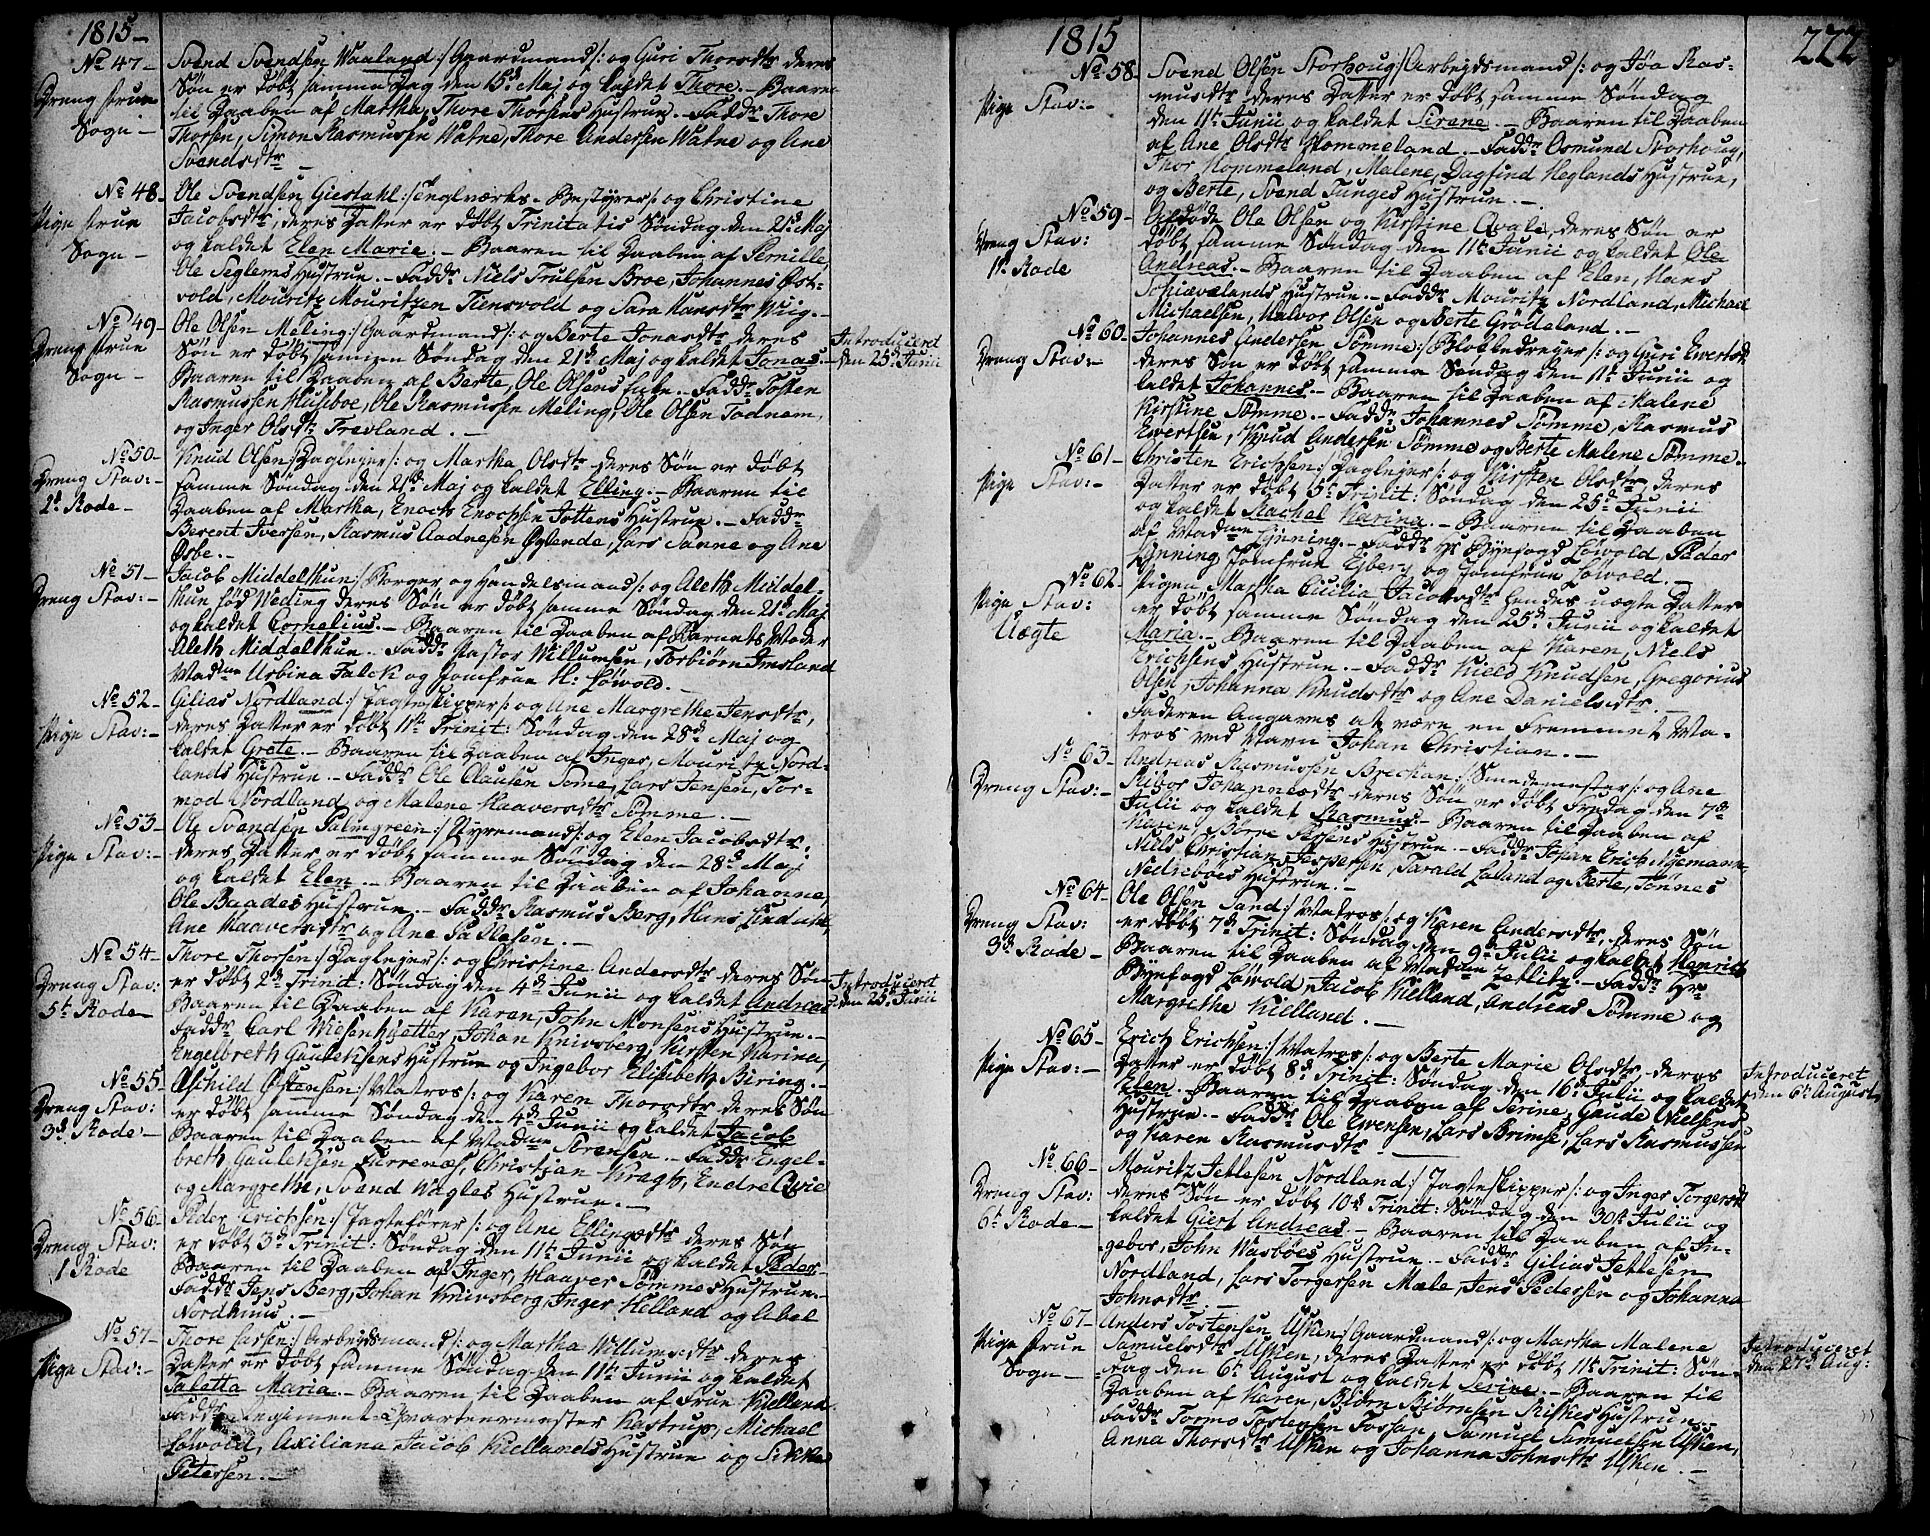 1815 –
No 47 –
Dreng Frue
Sogn –
Svend Svendsen Waaland :/Gaardmand/: og Guri Thorsdtr deres
Søn er døbt samme Dag den 15d Maj og kaldet Thore. – Baaren
til Daaben af Martha, Thore Thorsens Hustrue. – Faddr Thore
Thorsen, Simon Rasmussen Watne, Thore Andersen Watne og Ane
Svendsdtr –
No 48 –
Pige Frue
Sogn –
Ole Svendsen Giestahl :/ Seiglværks-Bestyrer/: og Christine
Jacobsdtr, deres Datter er døbt Trinitatis Søndag den 21d Maj
og kaldet Elen Marie. – Baaren til Daaben af Pernille,
Ole Seglems Hustrue. – Faddr Niels Truelsen Broe, Johannes Øst-
vold, Mouritz Mouritzen Tiensvold og Sara Hansdtr Wiig. –
No 49 –
Dreng Frue
Sogn –
Ole Olsen Meling :/Gaardmand/: og Berte Jonasdtr deres
Søn er døbt samme Søndag den 21d Maj og kaldet Jonas –
Baaren til Daaben af Berte, Ole Olsens – Faddr Tosten
Rasmussen Huseboe, Ole Rasmussen Meling, Ole Olsen Todnem,
og Inger Olsdtr Trevland. –
Introduceret
den 25d Junii
No 50 –
Dreng Stav: –
2d Rode –
Knud Olsen :/Daglejer/: og Martha Olsdtr deres Søn er døbt
samme Søndag den 21d Maj og kaldet Elling. – Baaren til
Daaben af Martha, Enoch Enochsen Jottens Hustrue. – Faddr
Berent Iversen, Rasmus Aadnesen Øglende, Lars Sanne og Ane
Osbe. –
No 51 –
Dreng Stav: –
Jacob Middelthun :/Borger og Handelsmand/: og Aleth Middel-
thun fød Weding deres Søn er døbt samme Søndag den 21d Maj
og kaldet Cornelius. – Baaren til Daaben af Barnets Moder
Aleth Middelthun. – Faddr Pastor Willumsen, Torbiørn Imsland
Madme Urbina Falck og Jomfrue H: Løwold. –
No 52 –
Pige Stav: –
Gilias Nordland :/Jagteskipper/: og Ane Margrethe Jensdtr,
deres Datter er døbt 1te Trinit: Søndag den 28d Maj og
kaldet Grete. – Baaren til Daaben af Inger, Mouritz Nord-
lands Hustrue. – Faddr Ole Clausen Some, Lars Jensen, Tor-
mod Nordland og Malene Haaversdtr Tømme. –
No 53 –
Pige Stav: –
Ole Svendsen Palmgreen :/Styremand/: og Elen Jacobsdtr,
deres Datter er døbt samme Søndag den 28d Maj
og kaldet Elen. – Baaren til Daaben af Johanne,
Ole Baades Hustrue. – Faddr Rasmus Berg, Hans Lindahl,
Ane Haaversdtr og Ane Sa Olesen. –
No 54 –
Dreng Stav:
5t Rode –
Thore Thorsen :/Daglejer/: og Christine Andersdtr deres Søn
er døbt 2d Trinit: Søndag den 4d Junii og kaldet Andreas
Baaren til Daaben af Karen, John Monsens Hustrue. –
Faddr Carl Wiesenhuetter, Johan Knivsberg, Kirsten Karina,
Engelbreth Gauletisens Hustrue og Ingebor Elisebeth Biring. –
Introduceret
den 25d Junii
No 55 –
Dreng Stav:
3d Rode –
Øschild Østensen :/Matros/: og Karen Thorsdtr deres Søn
er døbt samme Søndag den 4d Junii og kaldet Jacob
Baaren til Daaben af Madme Sørensen. – Faddr Engel-
breth Gauletisen Furrenæs, Christian Kragh, Endre Qvie
og Margrethe, Svend Wagles Hustrue. –
No 56 –
Dreng Stav:
1 Rode
Peder Erichsen :/Jagtefører/: og Ane Ellingsdtr deres Søn
er døbt 3d Trinit: Søndag den 11te Junii og kaldet Peder
Baaren til Daaben af Inger, Haaver Tømmes Hustrue. –
Faddr Jens Berg, Johan Knivsberg, Inger Helland og Abel
Nordhuus. –
No 57 –
Pige Stav: –
Thore Larsen :/Arbeidsmand/: og Martha Willumsdtr deres
Datter er døbt samme Søndag den 11te Junii og kaldet
Taletta Maria. – Baaren til Daaben af Frue Kielland.
Faddr Regiments qvartermester Kastrup, Michael
Løwold, Axiliana Jacob Kiellands Hustrue og Sikke
Petersen. –
1815
222
No 58 –
Pige Stav: –
Svend Olsen Storhoug :/Arbejdsmand/: og Jøa Ras-
musdtr deres Datter er døbt samme Søndag
den 11te Junii og kaldet Sirene. – Baaren til Daaben
af Ane Olsdtr Hommeland. – Faddr Osmund Storhoug,
Thor Hommeland, Malene, Dagfind Heglands Hustrue,
og Berte, Svend Tunges Hustrue. –
No 59 –
Dreng Stav:
1te Rode
Afdøde Ole Olsen og Kirstine Avgle, deres Søn er
døbt samme Søndag den 11te Junii og kaldet Ole
Andreas. – Baaren til Daaben af Elen, Hans
Schiævelands Hustrue. – Faddr Mouritz Nordland, Michael
Michaelsen, Halvor Olsen og Berte Grødeland. –
No 60 –
Dreng Stav: –
Johannes Andersen Tømme :/Blokkedrejer/: og Guri Evertsdtr
deres Søn er døbt samme Søndag den 11te Junii og
kaldet Johannes. – Baaren til Daaben af Malene
Kirstine Tømme. – Faddr Johannes Tømme, Rasmus
Ewertsen, Knud Andersen Tømme og Berte Malene Tømme.
No 61 –
Pige Stav: –
Christen Erichsen :/Daglejer/: og Kirsten Olsdtr, deres
Datter er døbt 5te Trinit: Søndag den 25d Junii
og kaldet Rachel Karina. – Baaren til Daaben
af Madme Lynning. – Faddr Hr Byefogd Løwold, Peder
Lynning, Jomfrue Eyberg og Jomfrue Løwold. –
No 62 –
Pige Stav:
Uægte
Pigen Martha Cicilia Jacobsdtr hendes uægte Datter
er døbt samme Søndag den 25d Junii og kaldet
Maria. – Baaren til Daaben af Karen, Niels
Erichsens Hustrue. – Faddr Kield Knudsen, Gregorius
Olsen, Johanna Knudsdtr og Ane Danielsdtr. –
Faderen Angaves at være en Fremmet Ma-
tros ved Navn Johan Christian. –
No 63 –
Dreng Stav: –
Andreas Rasmussen Brechan :/Smedemester/: og Ane
Ribor Johannesdtr deres Søn er døbt Fredag den 7d
Julii og kaldet Rasmus. – Baaren til Daaben af
Karen, Børre Hustrue. – Faddr Johan Erich Nyemann,
Niels Christian Jespersen, Tarald Leland og Berte, Tønnes
Nedreboes Hustrue. –
No 64 –
Dreng Stav:
3d Rode –
Ole Olsen Sand :/Matros/: og Karen Andersdtr, deres Søn
er døbt 7d Trinit: Søndag den 9d Julii og kaldet Henrich
Baaren til Daaben af Madme Zetlitz. – Faddr Hr
Byefogd Løwold, Jacob Kielland, Andreas Tømme og
Margrethe Kielland. –
No 65 –
Pige Stav: –
Erich Erichsen :/Matros/: og Berte Marie Olsdtr, deres
Datter er døbt 8d Trinit: Søndag den 16d Julii og kaldet
Elen. – Baaren til Daaben af Serine, Gaude Nielsens
Hustrue. – Faddr Ole Evensen, Lars Brimse, Lars Rasmussen
og Karen Rasmusdtr –
Introduceret
den 6te August
No 66 –
Dreng Stav:
6t Rode –
Mouritz Jetlesen Nordland :/Jagteskipper/: og Inger Torgersdtr
deres Søn er døbt 10de Trinit: Søndag den 30te Julii og
kaldet Giert Andreas – Baaren til Daaben af In-
gebor, John Wasbøes Hustrue. – Faddr Gilias Jetlesen
Nordland, Lars Torgersen Mæle, Jens Pedersen og Johanna
Johnsdtr. –
No 67 –
Pige Frue
Sogn –
Anders Tostensen Usken :/Gaardmand/: og Martha Malene
Samuelsdtr Usken, deres Datter er døbt 11te Trinit: Søn-
dag den 6te August og kaldet Serine. – Baaren til
Daaben af Karen, Biørn Biørnsen Riskes Hustrue. –
Faddr Tormo Tostensen Fossan, Samuel Samuelsen Usken,
Anna Thorsdtr Usken og Johanna Johnsdtr Usken. –
Introduceret
den 27d Aug: